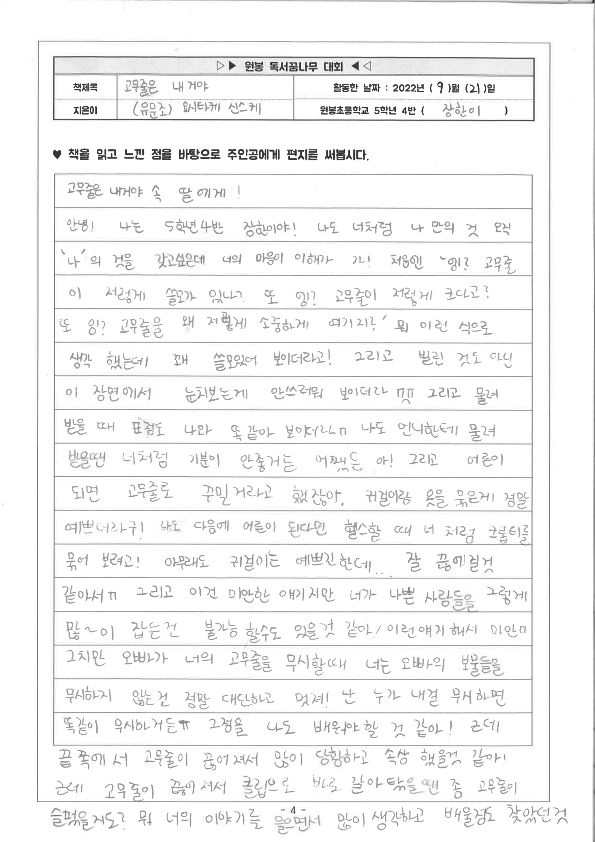 ▷▶ 원봉 독서꿈나무 대회 ◀◁
책제목 고무줄은 내 거야 활동한 날짜 : 2022년 (9)월 (21)일
지은이 (유문조) 요시타케 신스케 원봉초등학교 5학년 4반 ( 장한이 )
♥ 책을 읽고 느낀 점을 바탕으로 주인공에게 편지를 써봅시다.
고무줄은 내거야 속 딸에게!
안녕! 나는 5학년4반 장한이야! 나도 너처럼 나만의 것 오직
'나'의 것을 갖고싶은데 너의 마음이 이해가 가! 처음엔 '잉? 고무줄
이 저렇게 쓸모가 있나? 또 잉? 고무줄이 저렇게 크다고?
또 잉? 고무줄을 왜 저렇게 소중하게 여기지?' 뭐 이런 식으로
생각 했는데 꽤 쓸모있어 보이더라고! 그리고 빌린 것도 아닌
이 장면에서 눈치보는게 안쓰러워 보이더라ㅠㅠ 그리고 물려
받을 때 표정도 나와 똑같아 보이더라ㅠ 나도 언니한테 물려
받을땐 너처럼 기분이 안좋거든 어쨌든 아! 그리고 어른이
되면 고무줄로 꾸밀거라고 했잖아, 귀걸이랑 옷을 묶은게 정말
예쁘더라구! 나도 다음에 어른이 된다면 헬스할 때 너 처럼 크롭티를
묶어 보려고! 아무래도 귀걸이는 예쁘긴한데... 잘 끊어질것
같아서ㅠ 그리고 이건 미안한 얘기지만 너가 나쁜 사람들을 그렇게
많~이 잡는건 불가능 할수도 있을것 같아! 이런얘기해서 미안ㅠ
그치만 오빠가 너의 고무줄을 무시할때 너는 오빠의 보물들을
무시하지 않는건 정말 대단하고 멋져! 난 누가 내걸 무시하면
똑같이 무시하거든ㅠ 그점을 나도 배워야할 것 같아! 근데
끝쪽에서 고무줄이 끊어져서 많이 당황하고 속상 했을것 같아!
근데 고무줄이 끊어져서 클립으로 바로 갈아탔을땐 좀 고무줄이
슬펐을지도? 뭐 너의 이야기를 들으면서 많이 생각하고 배울점도 찾았던것
- 4 -